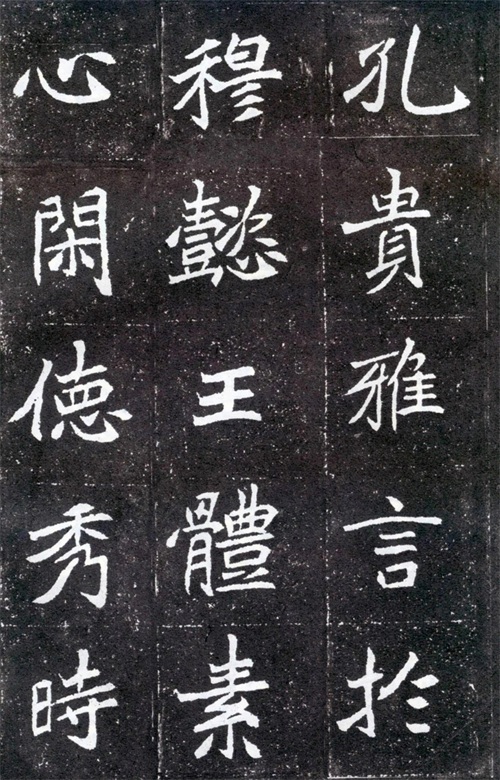 孔貴雅言於
穆懿王體素
心閑徳秀時